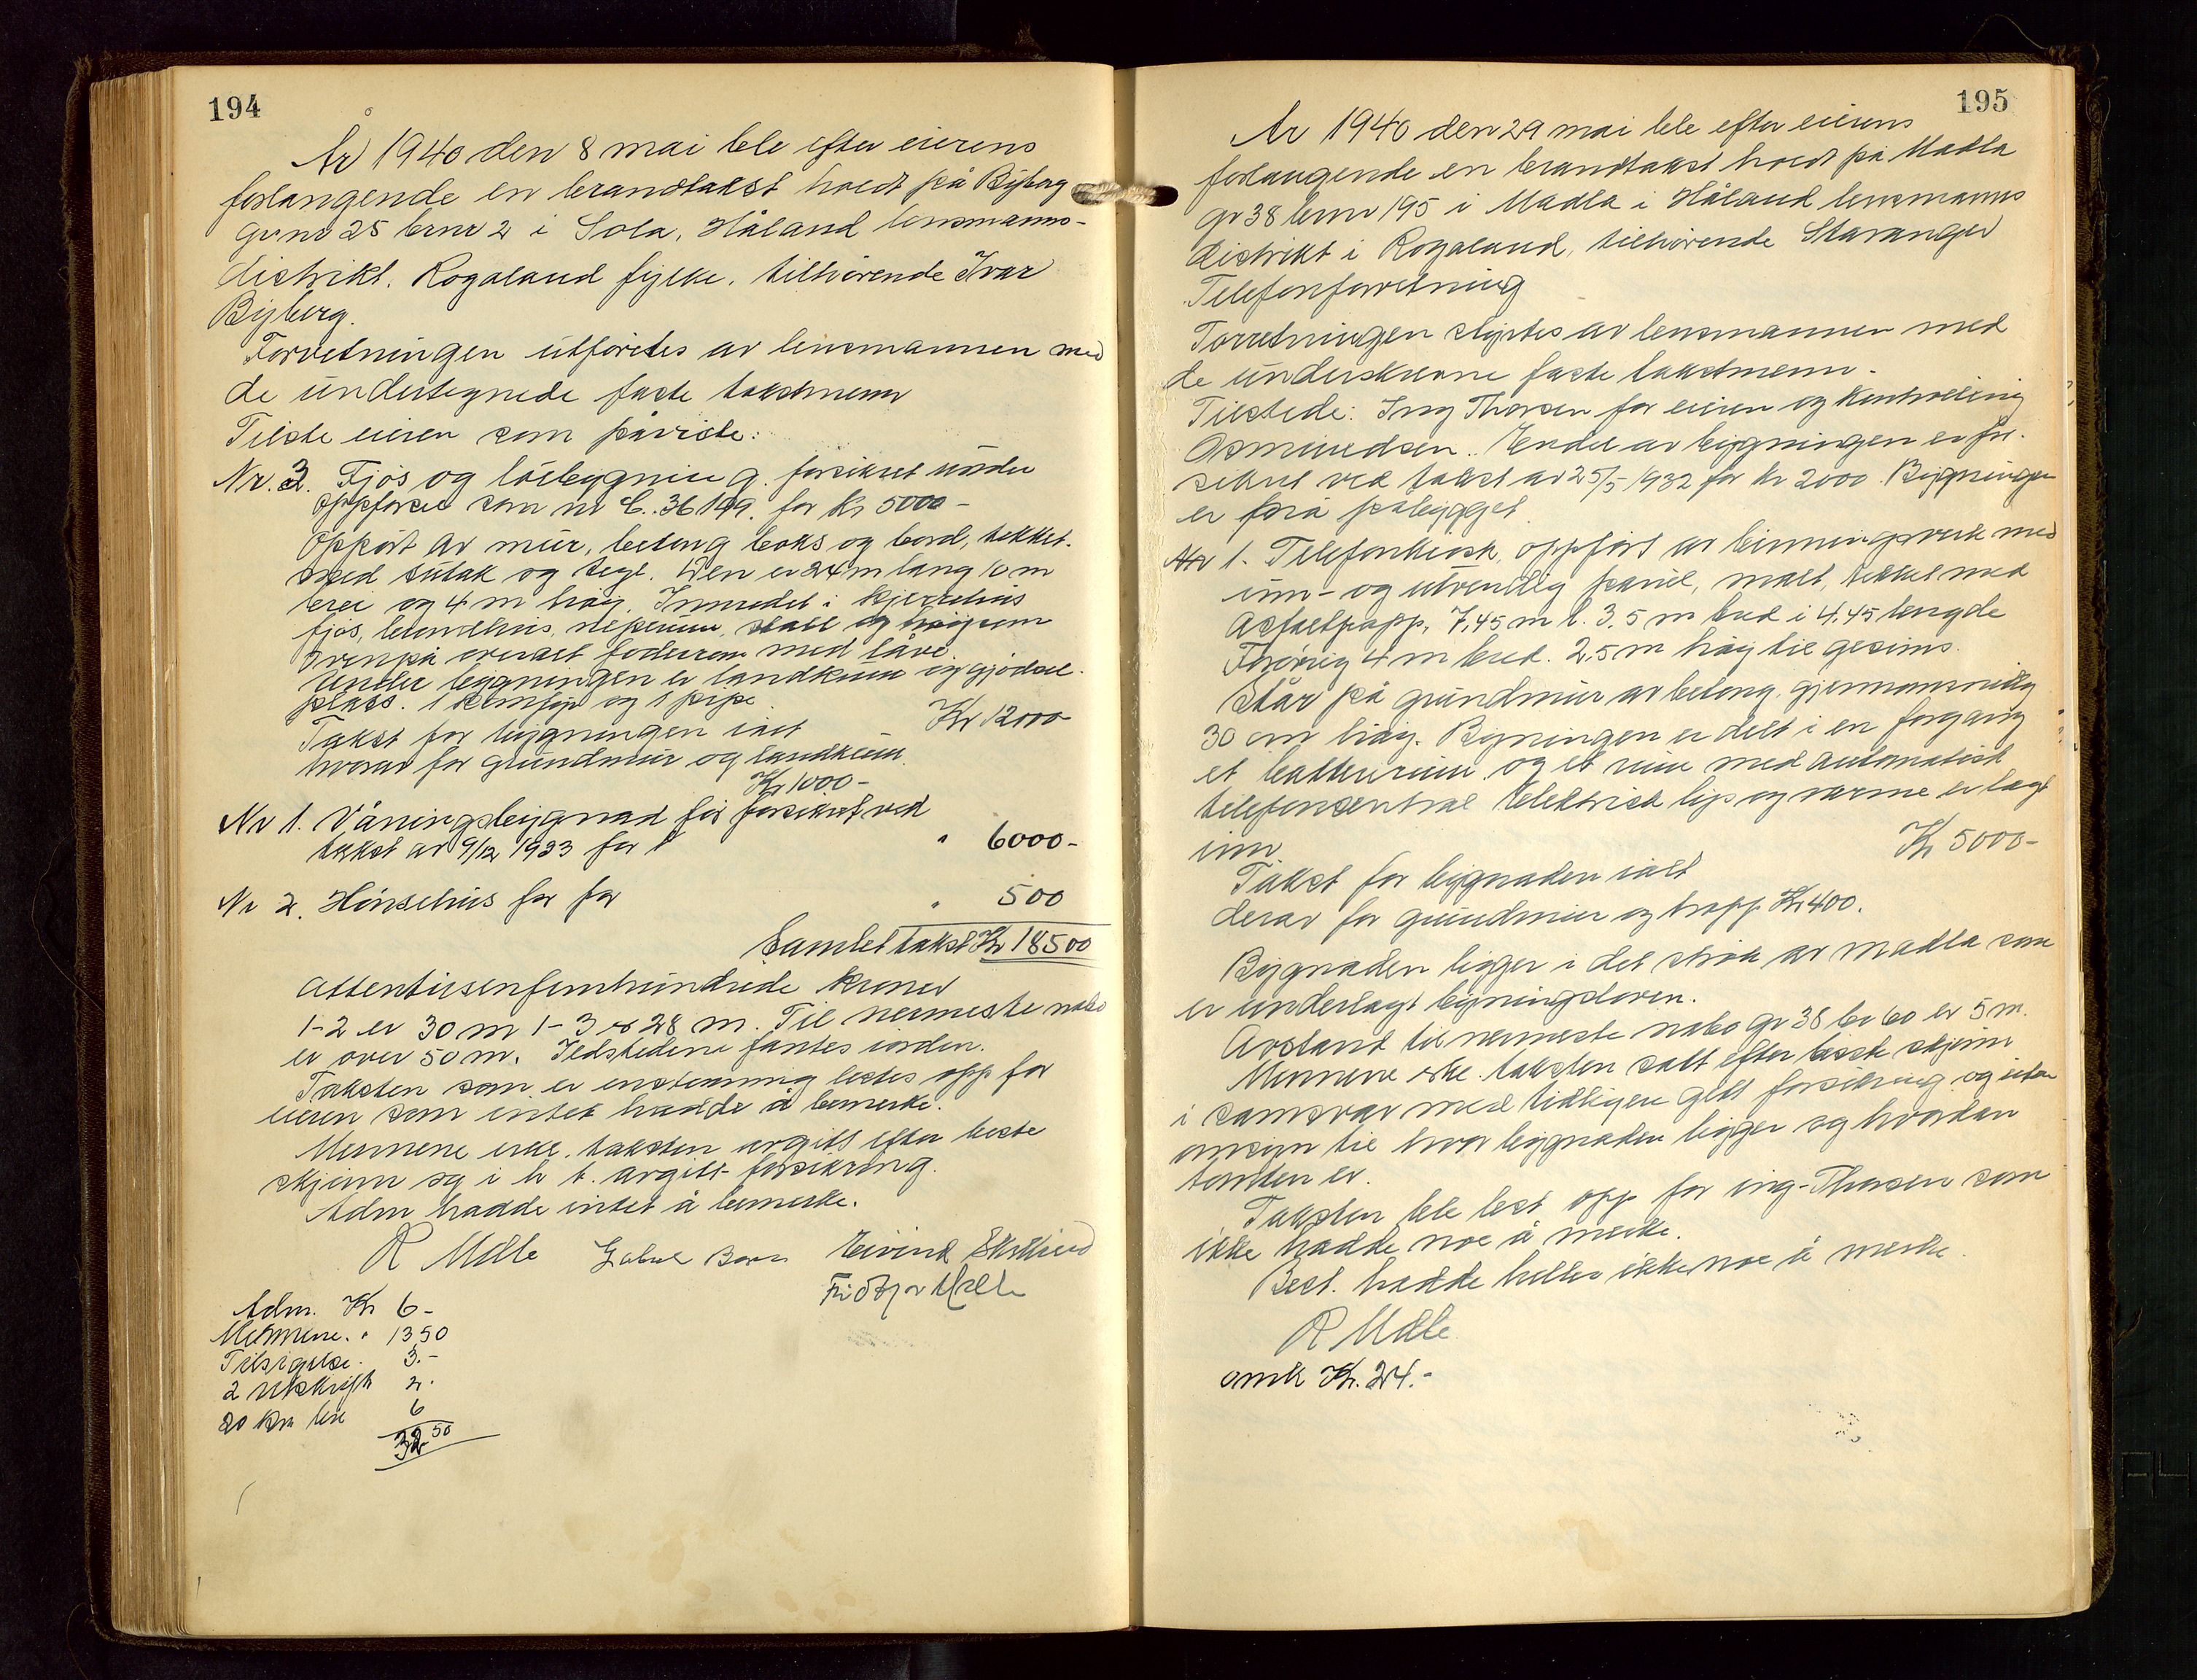 194
År 1940 den 8 mai ble efter eierens
forlangende en branntakst holdt på Byberg
gr nr 25 brnr 2 i Sola, Håland lensmanns-
distrikt. Rogaland fylke, tilhørende Ivar
Byberg.
Forretningen utførtes av lensmannen med
de undertegnede faste takstmenn
Tilste eieren som påviste:
Nr. 3. Fjøs og løebygning. forsikret under
oppførsel som nr C. 36199. for Kr 5000-
Oppført av mur, betong boks og bord, tekket
med sutak og tegl. Den er 24 m lang 10 m
brei og 4 m høig. Innredet i kjerrehus
fjøs, brundhus, stall og
Ovenpå overalt foderrom med låve.
Under bygningen er landkum og gjødsel-
plass. 1 pipe
Takst for bygningen ialt Kr 12000
hvorav for grundmur og landkum
Kr 1000-
Nr 1. Våningsbygnad før forsikret ved
takst av 9/12 1933 for " 6000-
Nr 2. Hønsehus før for " 500
Samlet takst Kr 18500
Attentusenfemhundrede kroner
1-2 er 30 m 1-3 er 28 m. Til nermeste nabo
er over 50 m. Ildstedene fantes iorden.
Taksten som er enstemmig lestes opp for
eieren som intet hadde å bemerke.
Mennene erkl. taksten avgitt efter beste
skjønn og i h. t. avgitt forsikring.
Adm hadde intet å bemerke.
R Malle Gabriel Eivind
Adm. Kr 6-
Mennene. " 1350
Tilsigelse. 3.-
2 utskrift 2.
20 km 6
50
195
År 1940 den 29 mai ble efter eierens
forlangende en branntakst holdt på Madla
gr 38 brnr 195 i Madla i Håland lensmanns
distrikt i Rogaland, tilhørende Stavanger
Telefonforretning
Forretningen styrtes av lensmannen med
de underskrevne faste takstmenn.
Tilstede: Ing Thorsen for eieren og Kontrolling
Osmundsen. Endel av bygningen er for-
sikret ved takst av 25/5 1932 for kr 2000. Bygningen
er påbygget
Nr 1. Telefonkiosk, oppført av binningsverk med
inn- og utvendig panel, malt, tekket med
Asfaltpapp, 7,45 m l. 3,5 m bred i 4,45 lengde
Forøvrig 4 m bred. 2,5 m høig til gesims.
Står på grundmur av betong, gjennomsnitlig
30 cm høig. Bygningen er delt i en forgang
et batterirum og et rum med automatisk
telefonsentral Elektrisk lys og varme er lagt
inn.
Takst for bygnaden ialt Kr 5000-
derav for grundmur og trapp Kr 400.
Bygnaden ligger i det strøk av Madla som
er underlagt bygningsloven.
Avstand til nermeste nabo gr 38 br 60 er 5 m.
Mennene erkl. taksten satt efter beste skjønn
i samsvar med tidligere gitt forsikring og uten
omsyn til hvor bygnaden ligger og hvordan
tomten er.
Taksten ble lest opp for ing- Thorsen som
ikke hadde noe å merke.
Best. hadde heller ikke noe å merke.
R Malle
omk Kr. 24.-